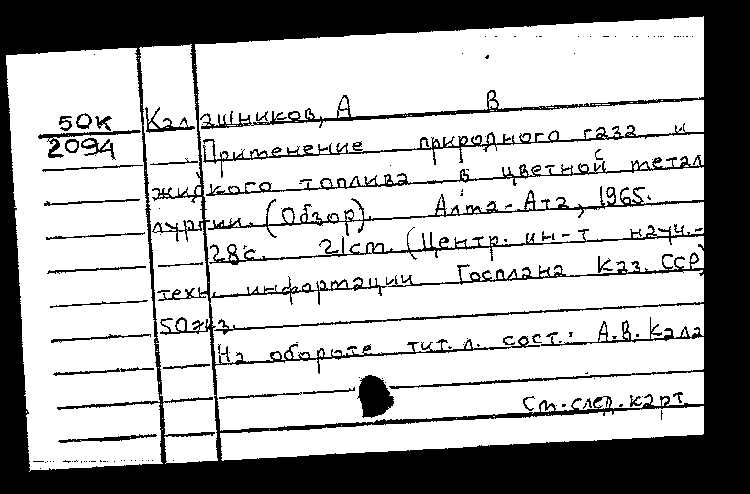 50К Калашников, А В
2094 Применение природного газа и
жидкого топлива в цветной метал
лургии. (Обзор). Алма-Ата, 1965.
28с. 21см. (Центр. ин-т науч.-
техн. информации Госплана Каз.ССР)
50экз.
На обороте тит.л. сост.: А.В.Кала
См.след.карт.